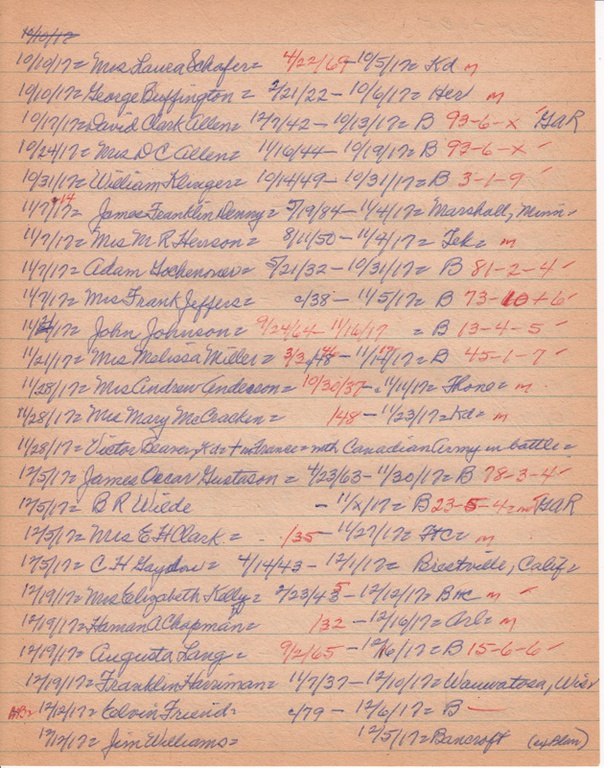 10/10/17
10/10/17= Mrs Laura Schafer= 4/22/69-10/5/17= Kd m
10/10/17= George Buffington = 2/21/22 - 10/6/17= Her m
10/17/17= David Clark Allen= 12/7/42 - 10/13/17= B 93-6-x ✓ GAR
10/24/17= Mrs D C Allen= 11/16/44 - 10/19/17= B 93-6-x ✓
10/31/17= William Klinger= 10/14/49 - 10/31/17= B 3-1-9 ✓
11/7/17= 14 James Franklin Denny= 5/19/84 - 11/4/17= Marshall, Minn=
11/7/17= Mrs M R Henson= 8/11/50 - 11/4/17= Tek= m
11/7/17= Adam Gochenour= 5/21/32 - 10/31/17= B 81-2-4 ✓
11/7/17= Mrs Frank Jeffers= c/38 - 11/5/17= B 73-10+6 ✓
/17= John Johnson= 9/24/64 - 11/16/17 = B 13-4-5 ✓
11/21/17= Mrs Melissa Miller= = B 45-1-7 ✓
11/28/17= Mrs Andrew Anderson= 10/30/37 - 11/14/17= Thone= m
11/28/17= Mrs Mary McCracken= /48 - 11/23/17= Kd= m
11/28/17= Victor Beaver, Kd= + in France= with Canadian Army in battle=
12/5/17= James Oscar Gustason= 4/23/63 - 11/30/17= B 78-3-4 ✓
12/5/17= B R Wiede - 11/x/17= B 23-5-4= GAR
12/5/17= Mrs E H Clark= /35 - 11/27/17= HC= m
12/5/17= C H Gaydou= 4/14/43 - 12/1/17= Brestville, Calif=
12/19/17= Mrs Elizabeth Kelly= 2/23/43 5 - 12/12/17= BHC m ✓
12/19/17= Haman A Chapman= /32 - 12/16/17= Arl= m
12/19/17= Augusta Lang= 9/2/65 - 12/16/17= B 15-6-6 ✓
12/19/17= Franklin Harriman= 11/7/37 - 12/10/17= Wauwatosa, Wis=
12/12/17= Elvin Friend= c/79 - 12/6/17= B —
12/12/17= Jim Williams= 12/5/17= Bancroft (ex Blair)